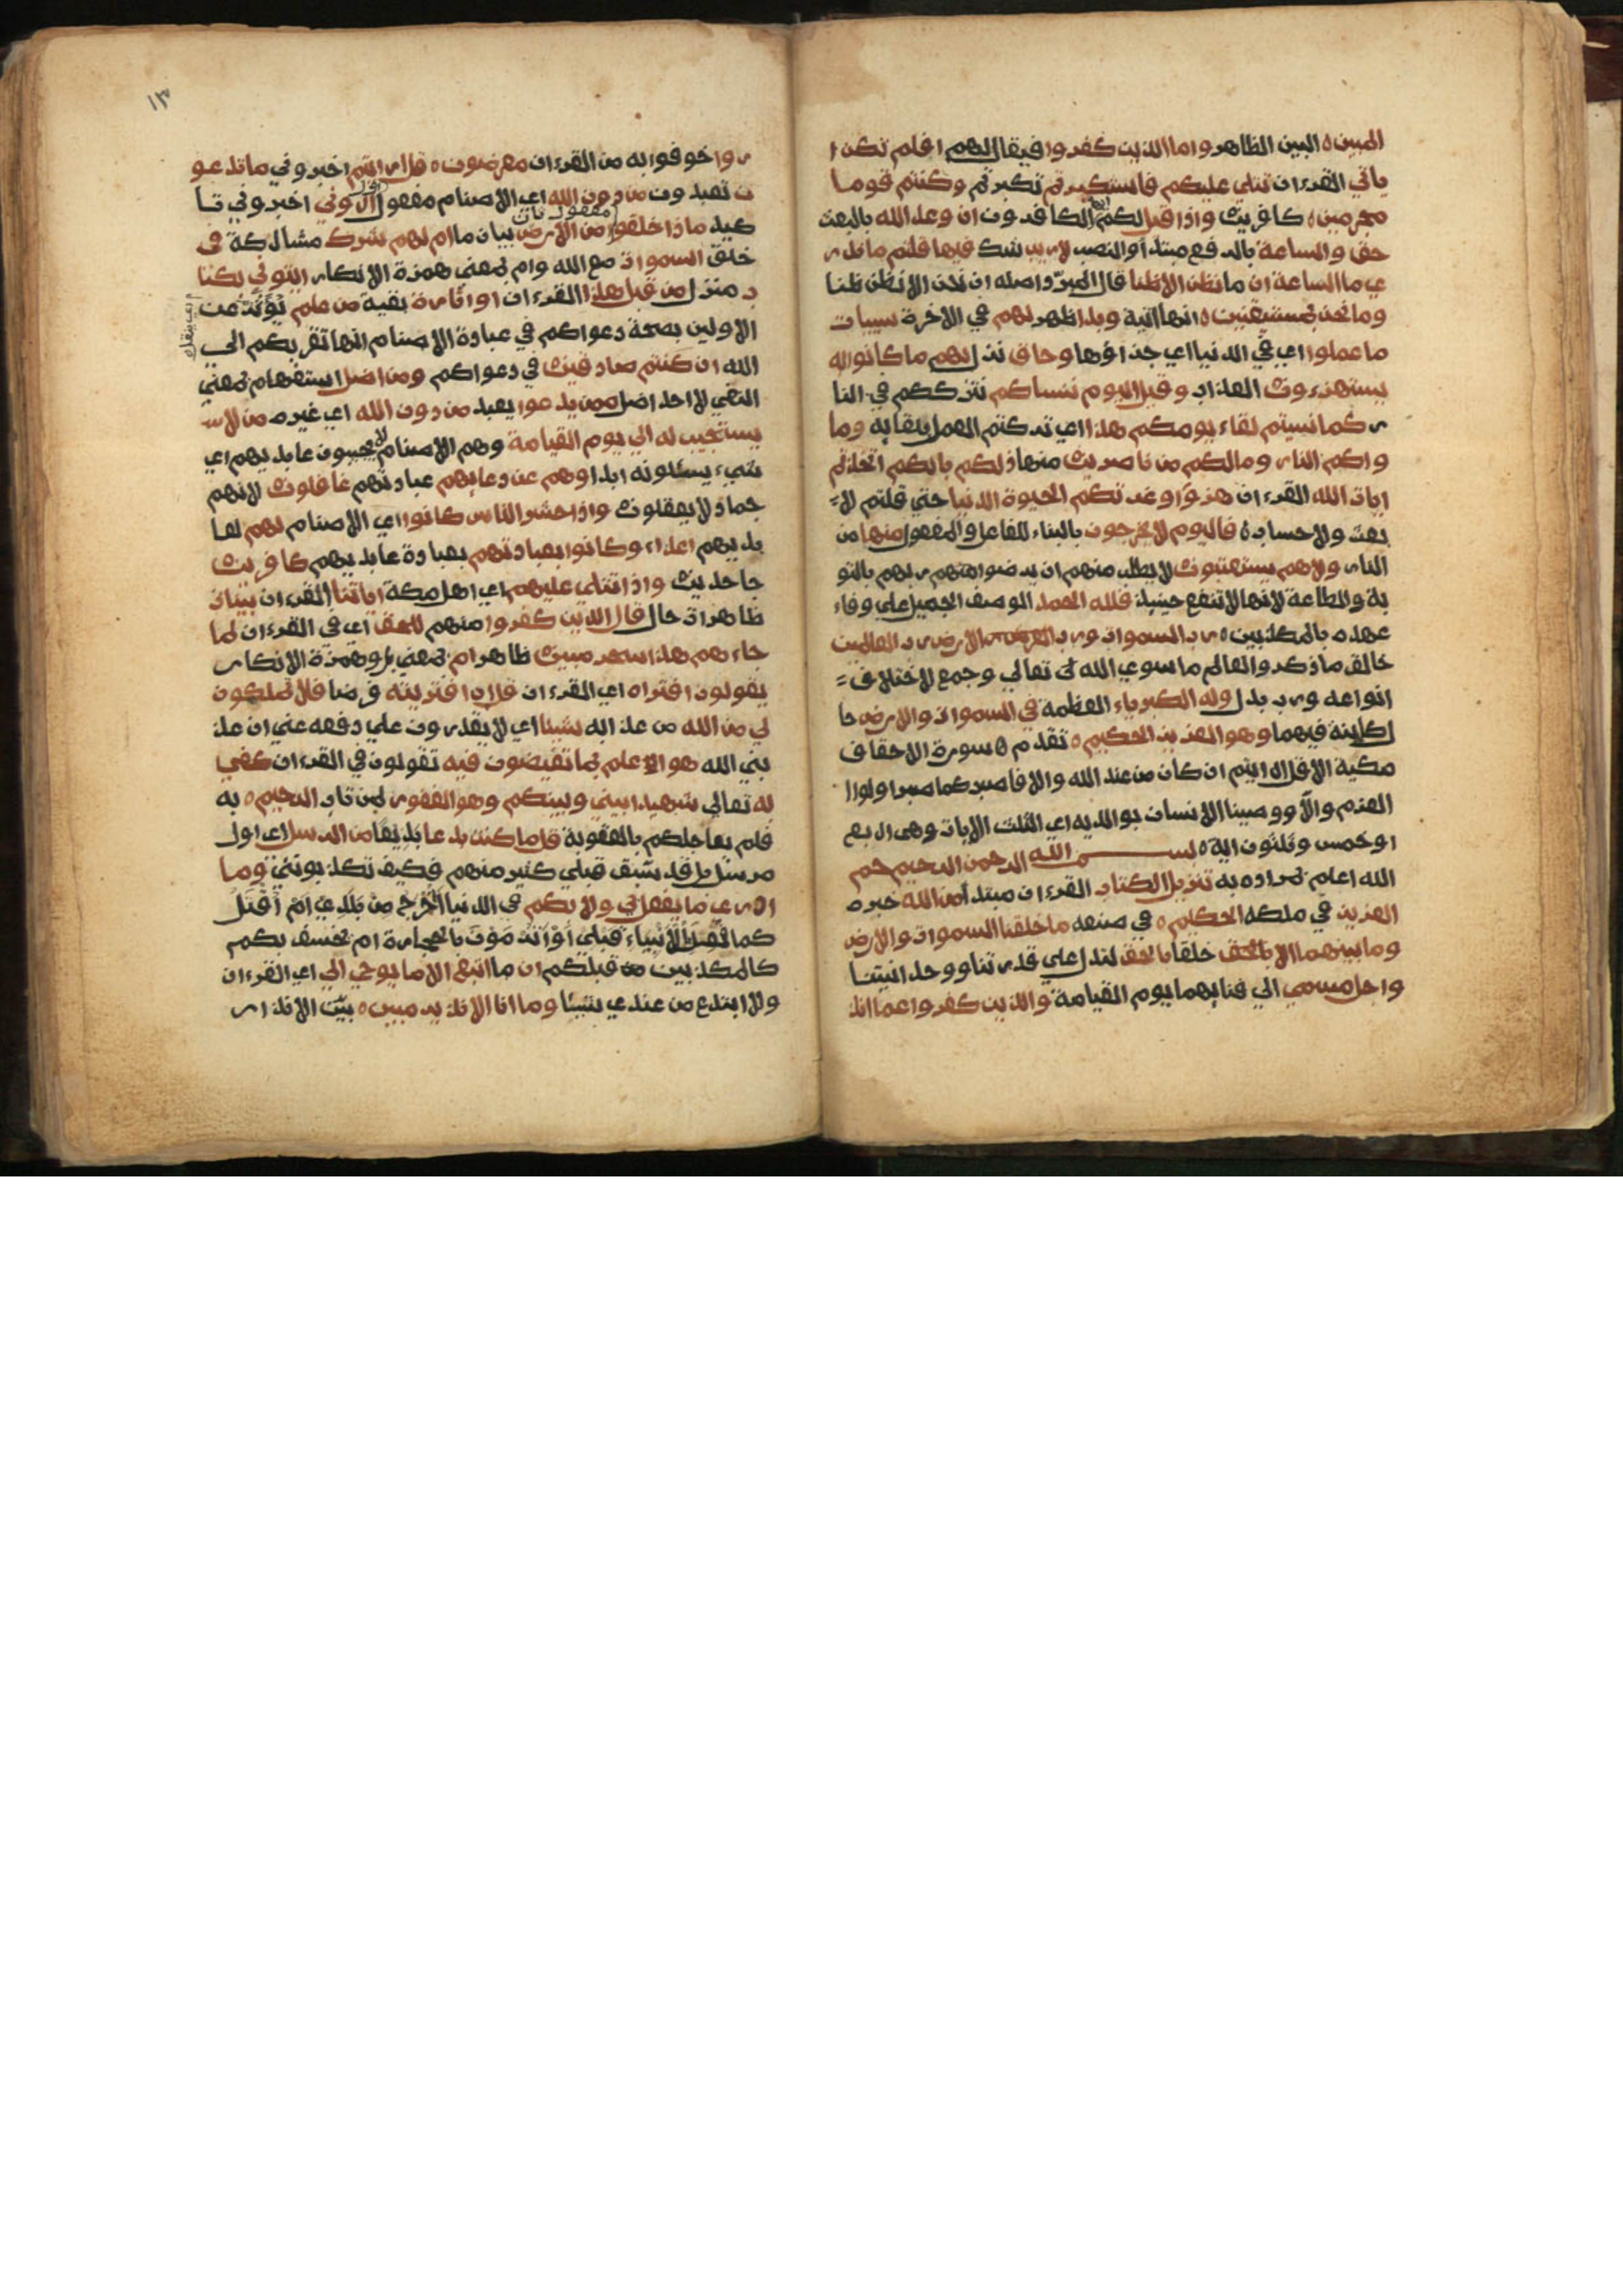 المبين ه البين الظاهر واما الذين كفروا فيقال لهم افلم تكن ا
ياتي القرءان تتلي عليكم فاستكبرتم تكبرتم وكنتم قوما
مجرمين ه كافرين واذا قيل لكم ايها الكافرون ان وعد الله بالبعث
حق والساعة بالرفع مبتدأ والنصب لا ريب شك فيها قلتم ما ندر
ي ما الساعة ان ما نظن الا ظنا قال المبرد اصله ان نحن الا نظن ظنا
وما نحن بمستيقنين ه انها اتية وبدا ظهر لهم في الاخرة سيىات
ما عملوا اي في الدنيا اي جزاؤها وحاق نزل بهم ما كانوا به
يستهزءون العذاب وقيل اليوم ننساكم نترككم في النا
ر كما نسيتم لقاء يومكم هذا اي تركتم العمل بلقايه وما
واكم النار وما لكم من ناصرين منها ذلكم بانكم اتخذتم
ايات الله القرءان هزؤا وغرتكم الحيوة الدنيا حتي قلتم لا
بعث ولا حساب ه فاليوم لا يخرجون بالبناء للفاعل والمفعول منها من
النار ولا هم يستعتبون لا يطلب منهم ان يرضوا ربهم بالتو
بة والطاعة لانها لا تنفع حينيذ فلله الحمد الوصف الجميل علي وفاء
عهده بالمكذبين ه رب السموات ورب الارض رب العالمين
خالق ما ذكر والعالم ما سوي الله تعالي وجمع لاختلاف
انواعه ورب بدل وله الكبرياء العظمة في السموات والارض حا
ل كاينة فيهما وهو العزيز الحكيم ه تقدم ه سورة الاحقاف
مكية الا قل ارايتم ان كان من عند الله والا فاصبر كما صبر اولوا ا
العزم والا ووصينا الانسان بوالديه اي الثلث الايات وهي اربع
او خمس وثلثون اية ه بسم الله الرحمن الرحيم حم
الله اعلم بمراده به تنزيل الكتاب القرءان مبتدأ من الله خبره
العزيز في ملكه الحكيم ه في صنعه ما خلقنا السموات والارض
وما بينهما الا بالحق خلقا بالحق لتدل علي قدرتنا ووحدانيتنا
واجل مسمي الي فنايهما يوم القيامة والذين كفروا عما انذ
١٣
روا خوفوا به من القرءان معرضون ه قل ارايتم اخبروني ما تدعو
ن تعبدون من دون الله اي الاصنام مفعول اول اروني اخبروني تا
كيد ماذا خلقوا مفعول ثان من الارض بيان ما ام لهم شرك مشاركة في
خلق السموات مع الله وام بمعني همزة الانكار ايتوني بكتا
ب منزل من قبل هذا القرءان او اثارة بقية من علم يؤثر عن
الاولين بصحة دعواكم في عبادة الاصنام انها تقربكم الي
الله ان كنتم صادقين في دعواكم ومن اضل استفهام بمعني
النفي لا احد اضل ممن يدعوا يعبد من دون الله اي غيره من لا
يستجيب له الي يوم القيامة وهم الاصنام لا يجيبون عابديهم اي
شيء يسىلونه ابدا وهم عن دعايهم عبادتهم غافلون لانهم
جماد لا يعقلون واذا حشر الناس كانوا اي الاصنام لهم لعا
بديهم اعداء وكانوا بعبادتهم بعبادة عابديهم كافرين
جاحدين واذا تتلي عليهم اي اهل مكة اياتنا القرءان بينات
ظاهرات حال قال الذين كفروا منهم للحق اي في القرءان لما
جاءهم هذا سحر مبين ظاهر ام بمعني بل وهمزة الانكار
يقولون افتراه اي القرءان قل ان افتريته فرضا فلا تملكون
لي من الله من عذابه شيىا اي لا يقدرون علي دفعه عني ان عذ
بني الله هو اعلم بما تفيضون فيه تقولون في القرءان كفي
به تعالي شهيدا بيني وبينكم وهو الغفور لمن تاب الرحيم ه به
فلم يعاجلكم بالعقوبة قل ما كنت بدعا بديعا من الرسل اي اول
مرسل بل قد سبق قبلي كثير منهم فكيف تكذبونني وما
ادري ما يفعل بي ولا بكم في الدنيا أأخرج من بلدي ام أقتل
كما فعل بالأنبياء قبلي أو أنتم ترمون بالحجارة ام يخسف بكم
كالمكذبين من قبلكم ان ما اتبع الا ما يوحي الي اي القرءان
ولا ابتدع من عندي شيىا وما انا الا نذير مبين ه بين الانذار